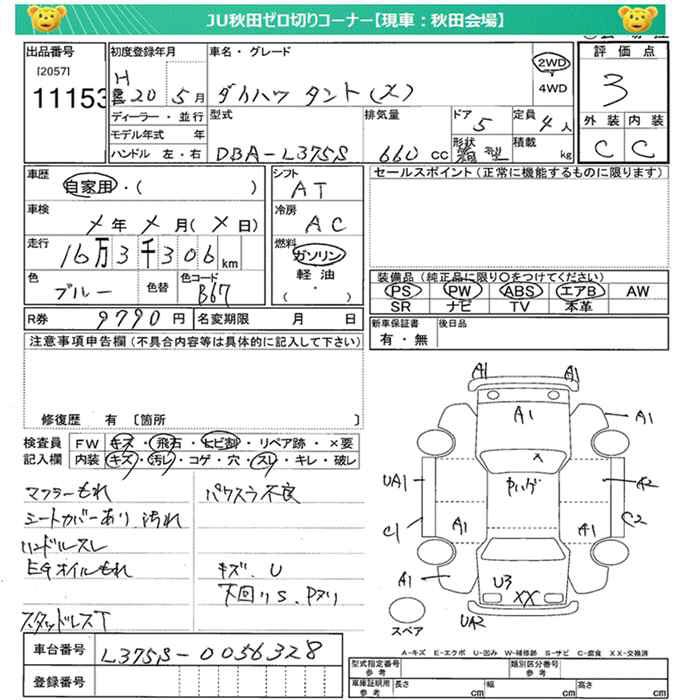 JU秋田ゼロ切りコーナー【現車：秋田会場】
出品番号
[2057]
11153
初度登録年月
H 20年 5月
ディーラー・並行
モデル年式 年
ハンドル 左・右
車名・グレード
ダイハツ タント(X)
2WD
4WD
型式
DBA-L375S
排気量
660 cc
ドア
5
形状
定員
4人
積載
kg
評価点
3
外装 内装
C C
車歴
自家用・( )
車検
メ年メ月(メ日)
走行
16万3千306km
色
ブルー
色替
色コード
B67
シフト
AT
冷房
AC
燃料
ガソリン
軽油
( ・ )
R券 9790円 名変期限 月 日
セールスポイント(正常に機能するものに限ります)
装備品(純正品に限り○をつけてください)
PS PW ABS エアB AW
SR ナビ TV 本革
新車保証書
有・無
後日品
注意事項申告欄(不具合内容等は具体的に記入して下さい)
修復歴 有 〔箇所 〕
検査員
記入欄
FW キズ・飛石・ヒビ割・リペア跡・×要
内装 キズ・汚レ・コゲ・穴・スレ・キレ・破レ
マフラーもれ
シートカバーあり 汚れ
ハンドルスレ
EGオイルもれ
スタッドレスT
パワスラ不良
キズ、U
下回りS、Pヌリ
車台番号 L375S-0056328
登録番号
A1 A1
A1 A1
UA1 Pハゲ A2
C1 A1 A1 C2
A1 U3 XX
UA2
スペア
A-キズ E-エクボ U-凹み W-補修跡 S-サビ C-腐食 XX-交換済
型式指定番号
参考
類別区分番号
参考
車庫証明用
参考
長さ cm 幅 cm 高さ cm